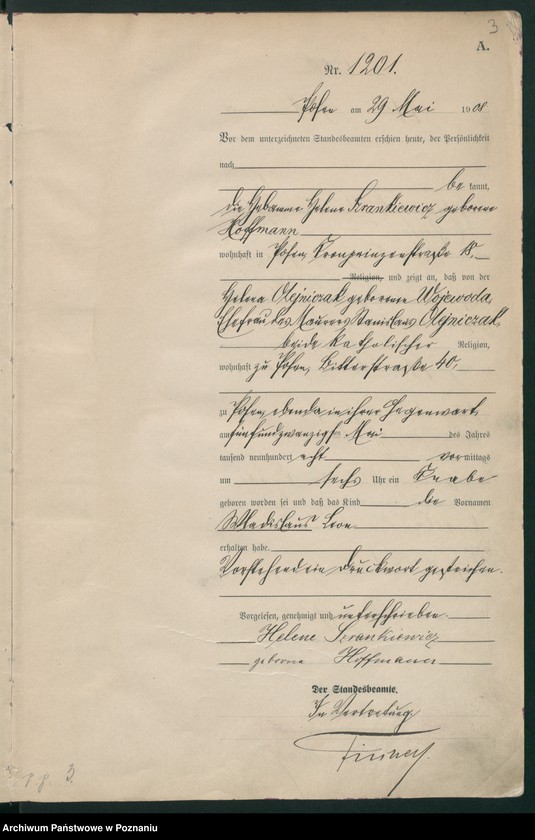 3
A.
Nr. 1201.
Posen am 29 Mai 1908
Vor dem unterzeichneten Standesbeamten erschien heute, der Persönlichkeit
nach
be kannt,
die Hebamme Helene Szrankiewicz geborene
Hoffmann
wohnhaft in Posen, Kronprinzenstraße
Religion, und zeigt an, daß von der
Helena Olejniczak geborenen Wojewoda,
Ehefrau des Maurers Stanislaus Olejniczak,
beide katholischer Religion,
wohnhaft zu Posen, Bitterstraße 40,
zu Posen, ebenda in ihrer Gegenwart
am fünfundzwanzigsten Mai des Jahres
tausend neunhundert acht vormittags
um sechs Uhr ein Knabe
geboren worden sei und daß das Kind die Vornamen
Wladislaus Leon
erhalten habe.
Vorstehend ein Druckwort gestrichen.
Vorgelesen, genehmigt und unterschrieben
Helene Szrankiewicz
geborene Hoffmann
Der Standesbeamte.
In Vertretung
3.
Archiwum Państwowe w Poznaniu